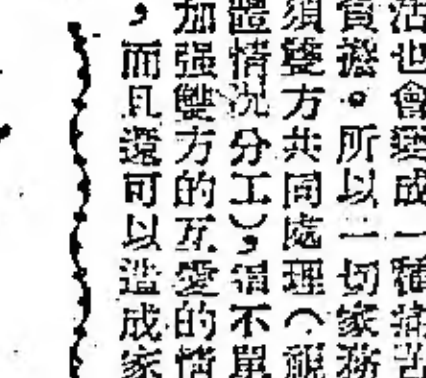 活也會變成一種痛苦
負擔。所以一切家務
須雙方共同處理（視
體情況分工），這不單
加强雙方的互愛的情
，而且還可以造成家